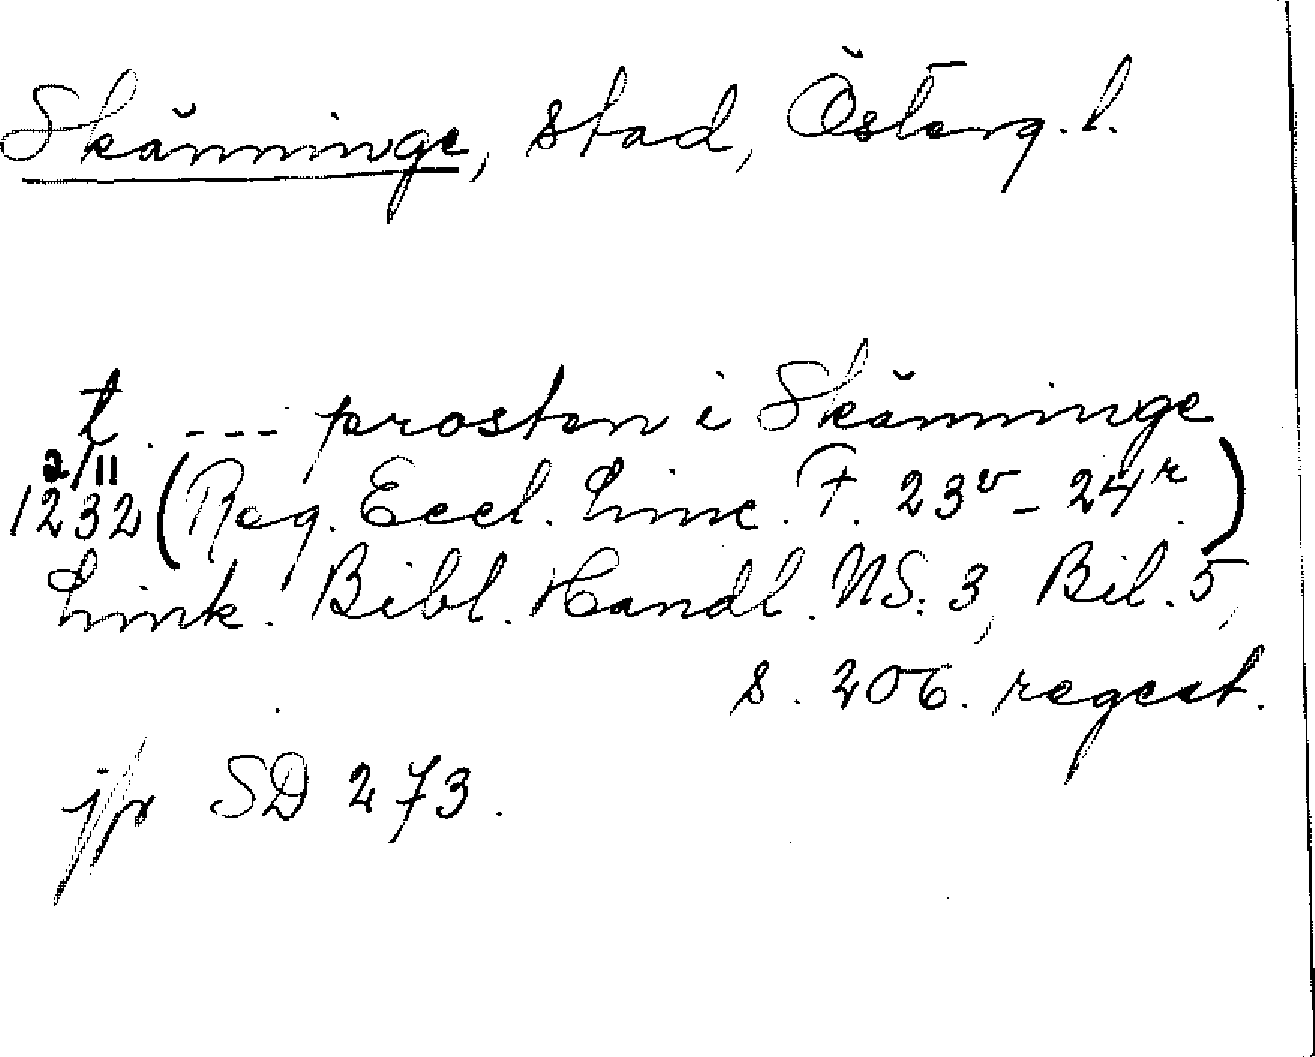 Skänninge, stad, Österg. l.
t. --- prosten i Skänninge
2/11
1232 (Reg. Eccl. Linc. F. 23v - 24r.)
Link. Bibl. Handl. NS. 3, Bil. 5,
s. 206. regest.
jfr SD 273.